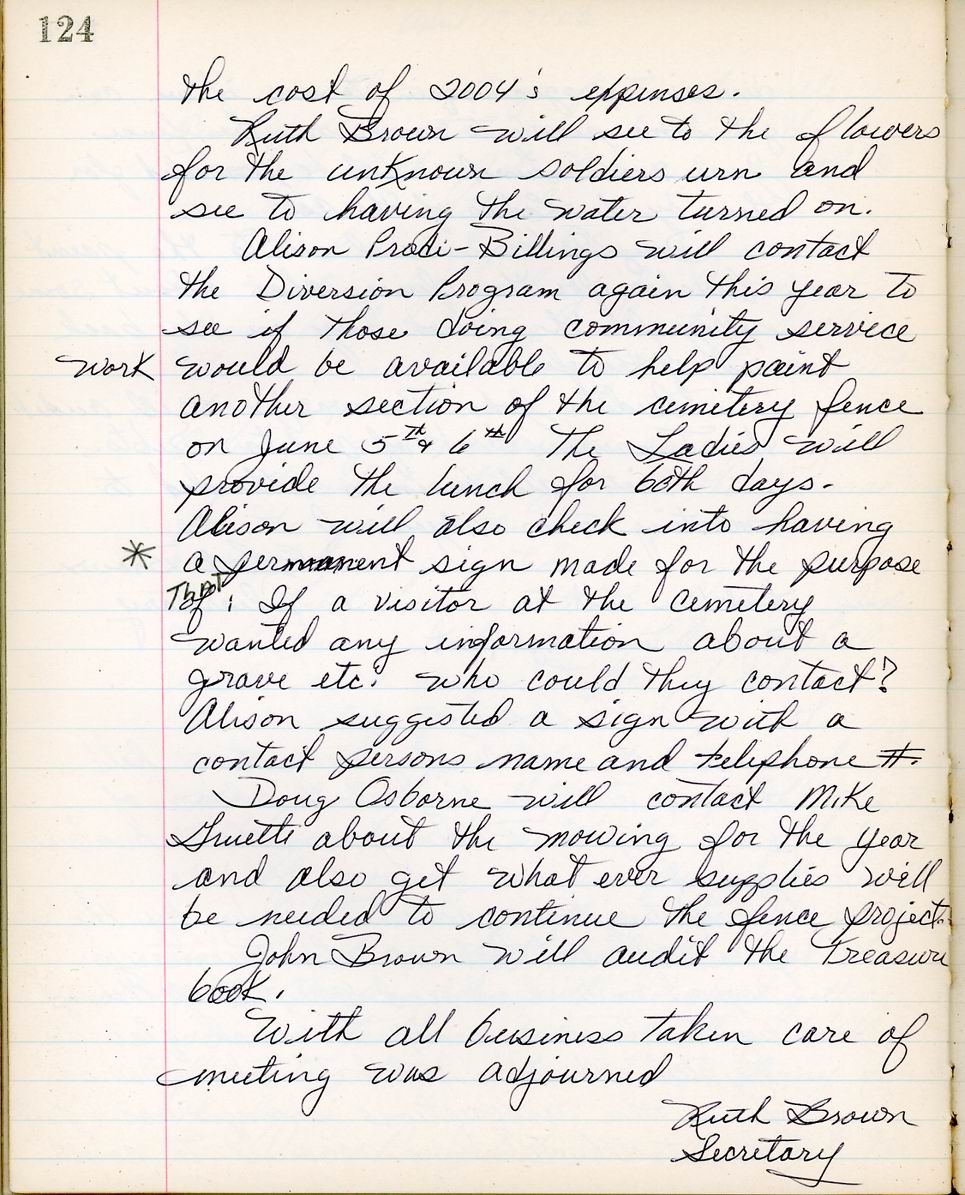 124
the cost of 2004's expenses.
Ruth Brown will see to the flowers
for the unknown soldiers urn and
see to having the water turned on.
Alison -Billings will contact
the Diversion Program again this year to
see if those doing community service
work would be available to help paint
another section of the cemetery fence
on June 5th & 6th The Ladies will
provide the lunch for both days.
Alison will also check into having
* a permanent sign made for the purpose
That
of: If a visitor at the cemetery
wanted any information about a
grave etc. who could they contact?
Alison suggested a sign with a
contact persons name and telephone #.
Doug Osborne will contact Mike
about the mowing for the year
and also get what ever supplies will
be needed to continue the fence project.
John Brown will audit the Treasure
book.
With all business taken care of
meeting was adjourned
Ruth Brown
Secretary